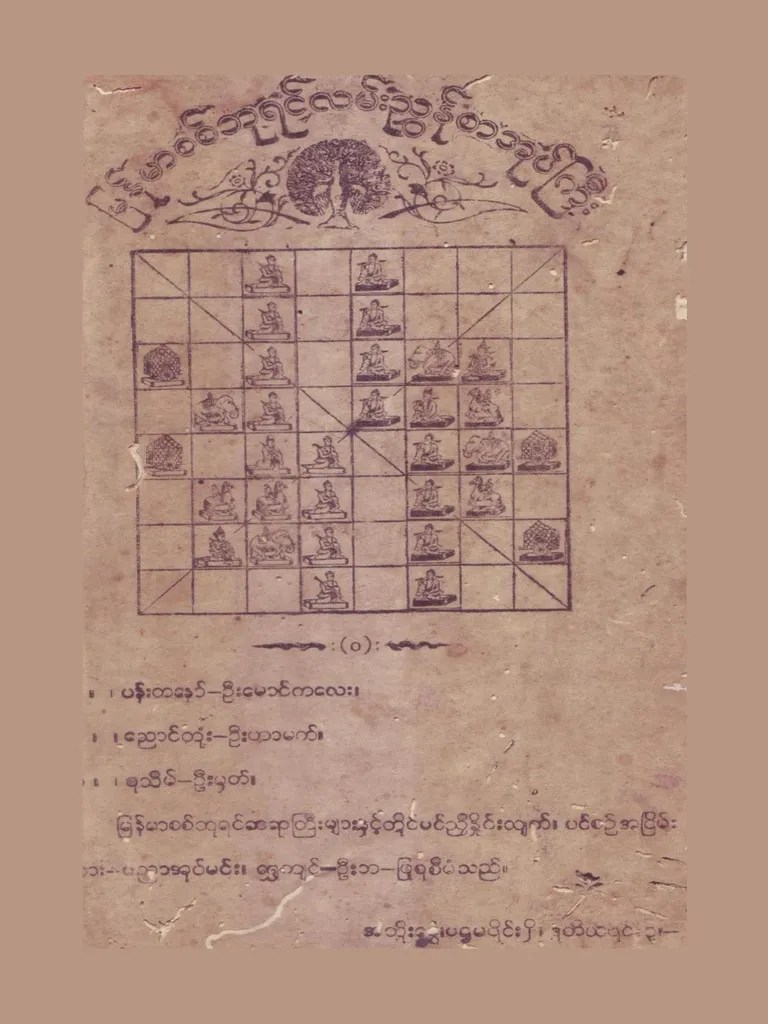 မြန်မာစစ်ဘုရင်လမ်းညွှန်စာအုပ်ကြီး
:(၀):
။ ၊ ပန်းတနော်—ဦးမောင်ကလေး။
။ ၊ ညောင်တုံး—ဦးဟာမက်။
။ ၊ ရသိမ်—ဦးမှတ်။
မြန်မာစစ်ဘုရင်ဆရာကြီးများနှင့်တိုင်ပင်ညှိနှိုင်းလျက်။ ပင်စဉ်အငြိမ်း
စား—ပညာအုပ်မင်း။ ရွှေကျင်—ဦးဘ—ပြုရစီမံသည်။
အတိုးနှုန်း၊ပဌမပိုင်း